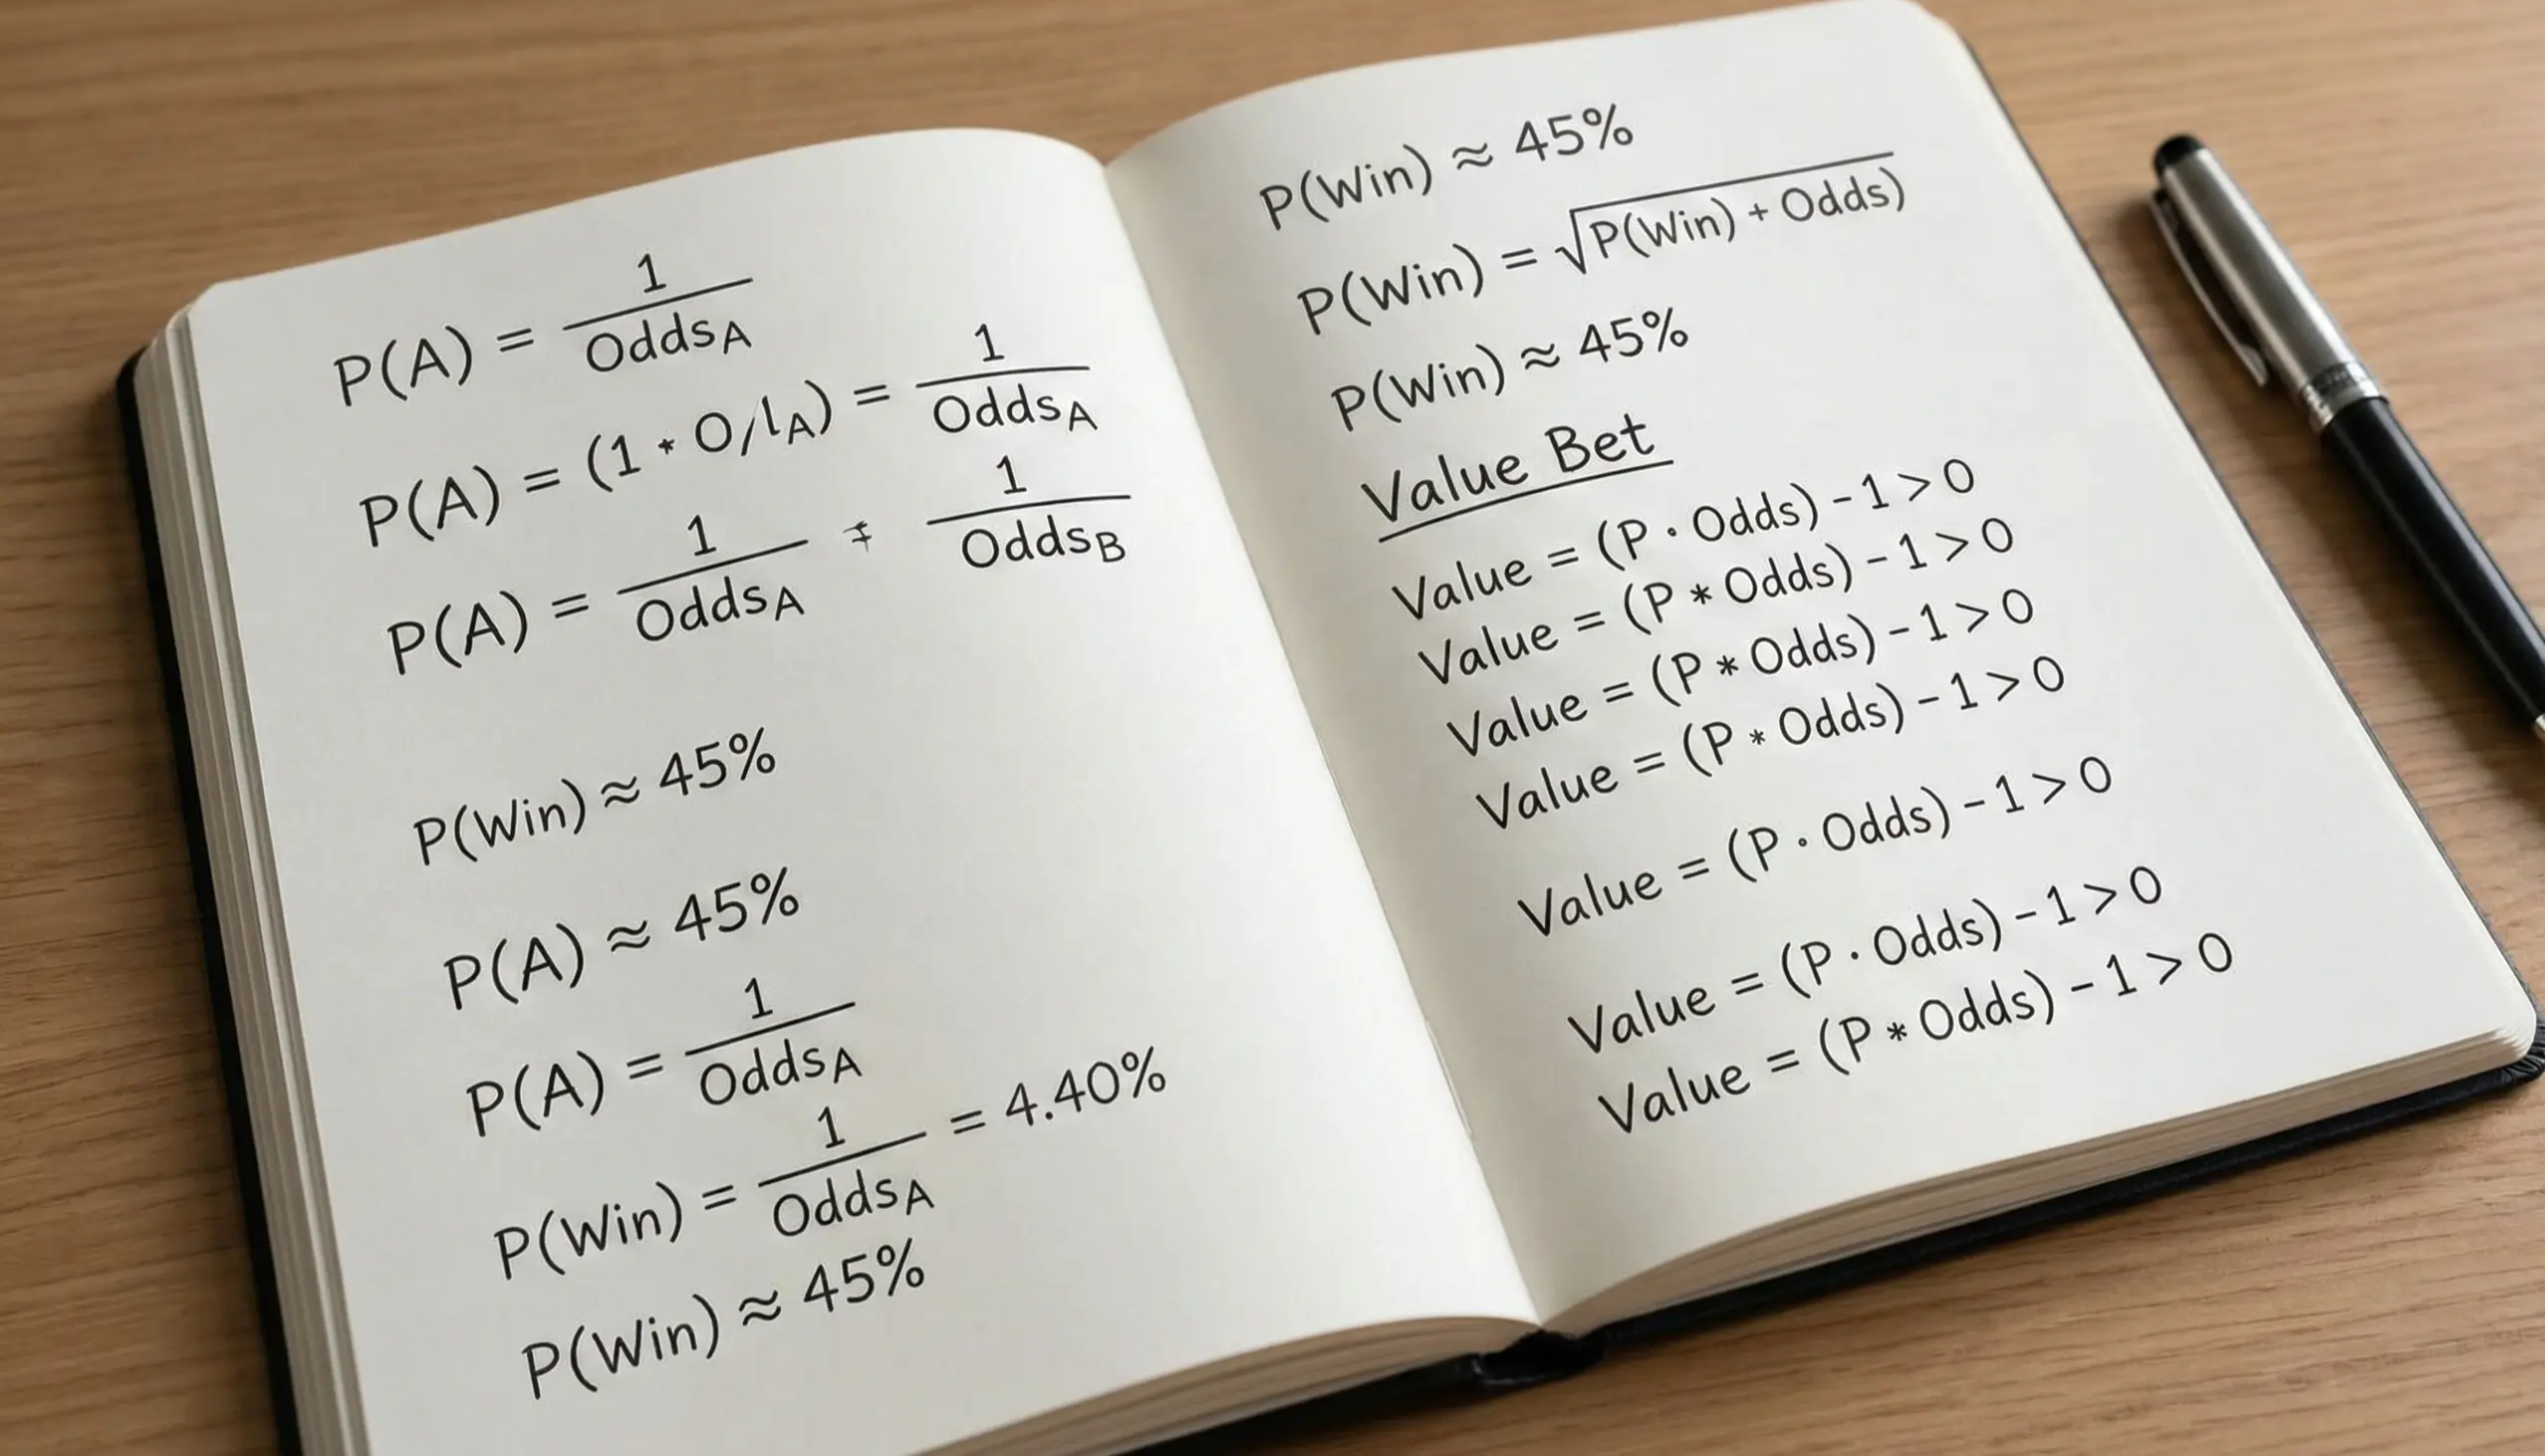 P(A) = 1/Odds_A
P(A) = (1 * O/l_A) = 1/Odds_A
P(A) = 1/Odds_A 1/Odds_B
P(Win) ≈ 45%
P(A) ≈ 45%
P(A) = 1/Odds_A
P(Win) = 1/Odds_A = 4.40%
P(Win) ≈ 45%
P(Win) ≈ 45%
P(Win) = √(P(Win) + Odds)
P(Win) ≈ 45%
Value Bet
Value = (P · Odds) - 1 > 0
Value = (P * Odds) - 1 > 0
Value = (P * Odds) - 1 > 0
Value = (P * Odds) - 1 > 0
Value = (P · Odds) - 1 > 0
Value = (P · Odds) - 1 > 0
Value = (P * Odds) - 1 > 0